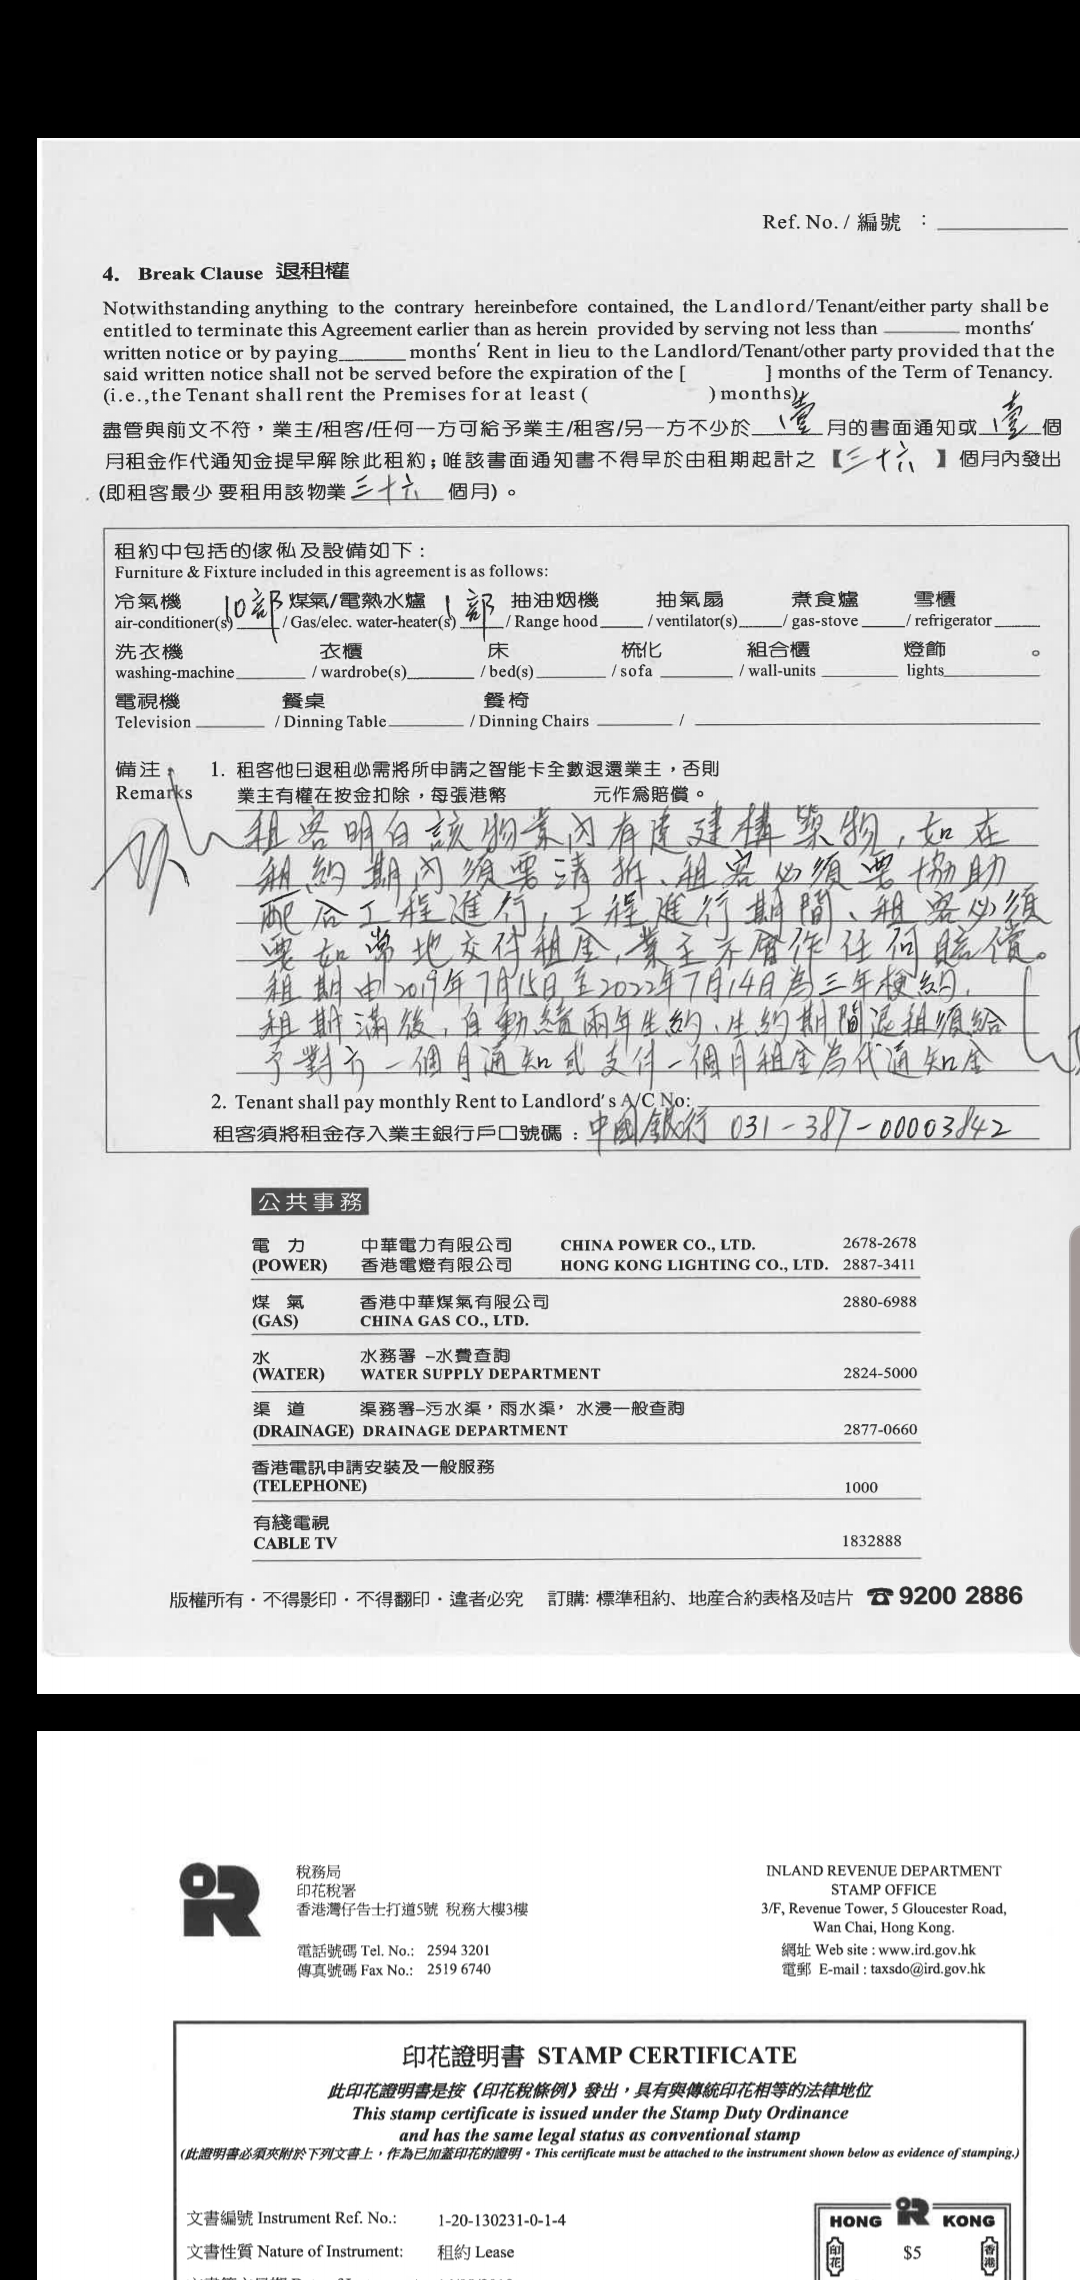 Ref. No. / 編號 ：
4. Break Clause 退租權
Notwithstanding anything to the contrary hereinbefore contained, the Landlord/Tenant/either party shall be
entitled to terminate this Agreement earlier than as herein provided by serving not less than ______ months'
written notice or by paying______ months' Rent in lieu to the Landlord/Tenant/other party provided that the
said written notice shall not be served before the expiration of the [ ] months of the Term of Tenancy.
(i.e.,the Tenant shall rent the Premises for at least ( ) months)
盡管與前文不符，業主/租客/任何一方可給予業主/租客/另一方不少於 壹 月的書面通知或 壹 個
月租金作代通知金提早解除此租約；唯該書面通知書不得早於由租期起計之【三十六】個月內發出
(即租客最少要租用該物業 三十六 個月)。
租約中包括的傢俬及設備如下：
Furniture & Fixture included in this agreement is as follows:
冷氣機 10部 煤氣/電熱水爐 1部 抽油烟機 抽氣扇 煮食爐 雪櫃
air-conditioner(s)____ / Gas/elec. water-heater(s)____ / Range hood____ / ventilator(s)____ / gas-stove ____ / refrigerator ____
洗衣機 衣櫃 床 梳化 組合櫃 燈飾 。
washing-machine______ / wardrobe(s)______ / bed(s)______ / sofa ______ / wall-units ______ lights______
電視機 餐桌 餐椅
Television ______ / Dinning Table______ / Dinning Chairs ______ / ______
備注： 1. 租客他日退租必需將所申請之智能卡全數退還業主，否則
Remarks 業主有權在按金扣除，每張港幣 元作爲賠償。
租客明白該物業內有違建構築物，如在
租約期內須要清拆、租客必須要協助
配合工程進行，工程進行期間、租客必須
要如常地交付租金，業主不會作任何賠償。
租期由2019年7月15日至2022年7月14日為三年梗約，
租期滿後，自動續兩年生約、生約期間退租須給
予對方一個月通知或支付一個月租金為代通知金
2. Tenant shall pay monthly Rent to Landlord's A/C No:
租客須將租金存入業主銀行戶口號碼：中國銀行 031-387-00003842
公共事務
電 力 中華電力有限公司 CHINA POWER CO., LTD. 2678-2678
(POWER) 香港電燈有限公司 HONG KONG LIGHTING CO., LTD. 2887-3411
煤 氣 香港中華煤氣有限公司 2880-6988
(GAS) CHINA GAS CO., LTD.
水 水務署 –水費查詢
(WATER) WATER SUPPLY DEPARTMENT 2824-5000
渠 道 渠務署–污水渠，雨水渠，水浸一般查詢
(DRAINAGE) DRAINAGE DEPARTMENT 2877-0660
香港電訊申請安裝及一般服務
(TELEPHONE) 1000
有綫電視
CABLE TV 1832888
版權所有．不得影印．不得翻印．違者必究 訂購: 標準租約、地產合約表格及咭片 ☎ 9200 2886
稅務局
印花稅署
香港灣仔告士打道5號 稅務大樓3樓
電話號碼 Tel. No.: 2594 3201
傳真號碼 Fax No.: 2519 6740
INLAND REVENUE DEPARTMENT
STAMP OFFICE
3/F, Revenue Tower, 5 Gloucester Road,
Wan Chai, Hong Kong.
網址 Web site : www.ird.gov.hk
電郵 E-mail : taxsdo@ird.gov.hk
印花證明書 STAMP CERTIFICATE
此印花證明書是按《印花稅條例》發出，具有與傳統印花相等的法律地位
This stamp certificate is issued under the Stamp Duty Ordinance
and has the same legal status as conventional stamp
(此證明書必須夾附於下列文書上，作為已加蓋印花的證明。This certificate must be attached to the instrument shown below as evidence of stamping.)
文書編號 Instrument Ref. No.: 1-20-130231-0-1-4
文書性質 Nature of Instrument: 租約 Lease
HONG KONG
印花 $5 香港